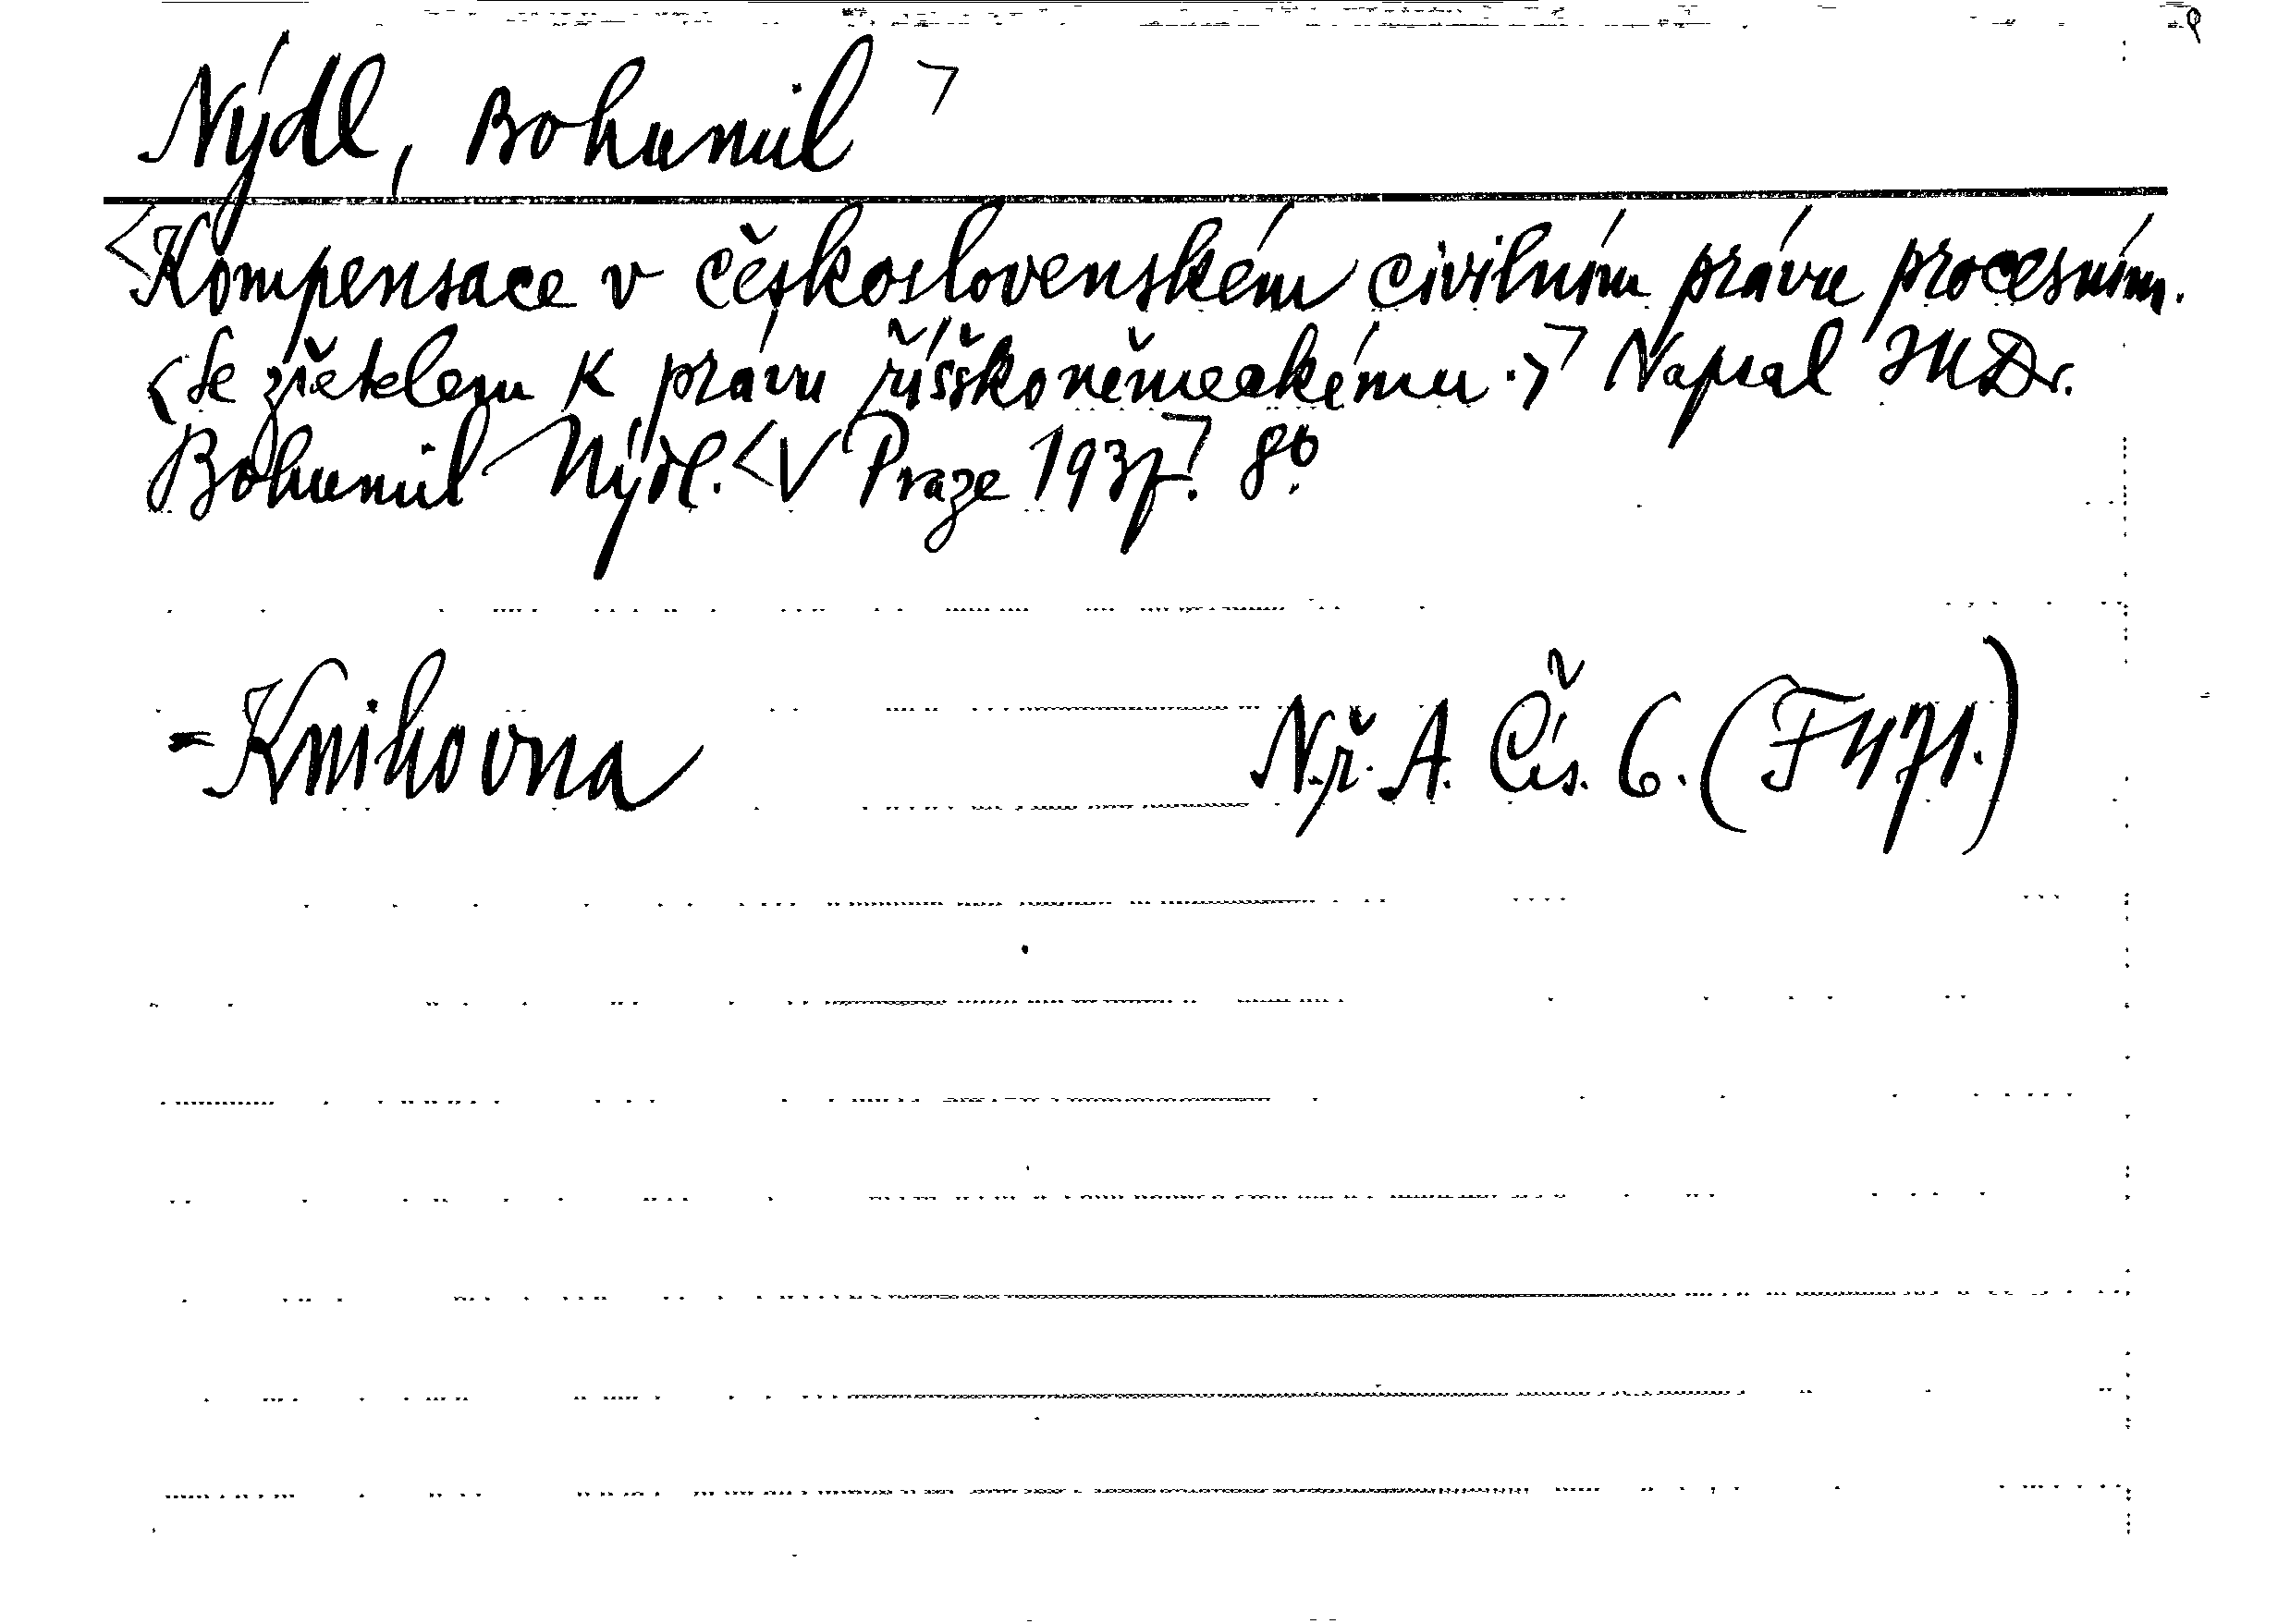 Nýdl, Bohumil
Kompensace v československém civilním právu procesním.
(Se zřetelem k právu říšskoněmeckému.) Napsal JUDr.
Bohumil Nýdl. V Praze 1937. 8°.
= Knihovna N.ř. A. Čís. 6. (F471.)